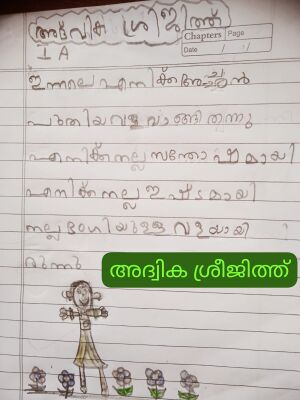 അദ്വിക ശ്രീജിത്ത്
I A
Chapters Page
Date
ഇന്നലെ എനിക്ക് അച്ഛൻ
പുതിയ വള വാങ്ങി തന്നു
എനിക്ക് നല്ല സന്തോഷമായി
എനിക്ക് നല്ല ഇഷ്ടമായി
നല്ല ഭംഗിയുള്ള വളയായി
രുന്നു
അദ്വിക ശ്രീജിത്ത്